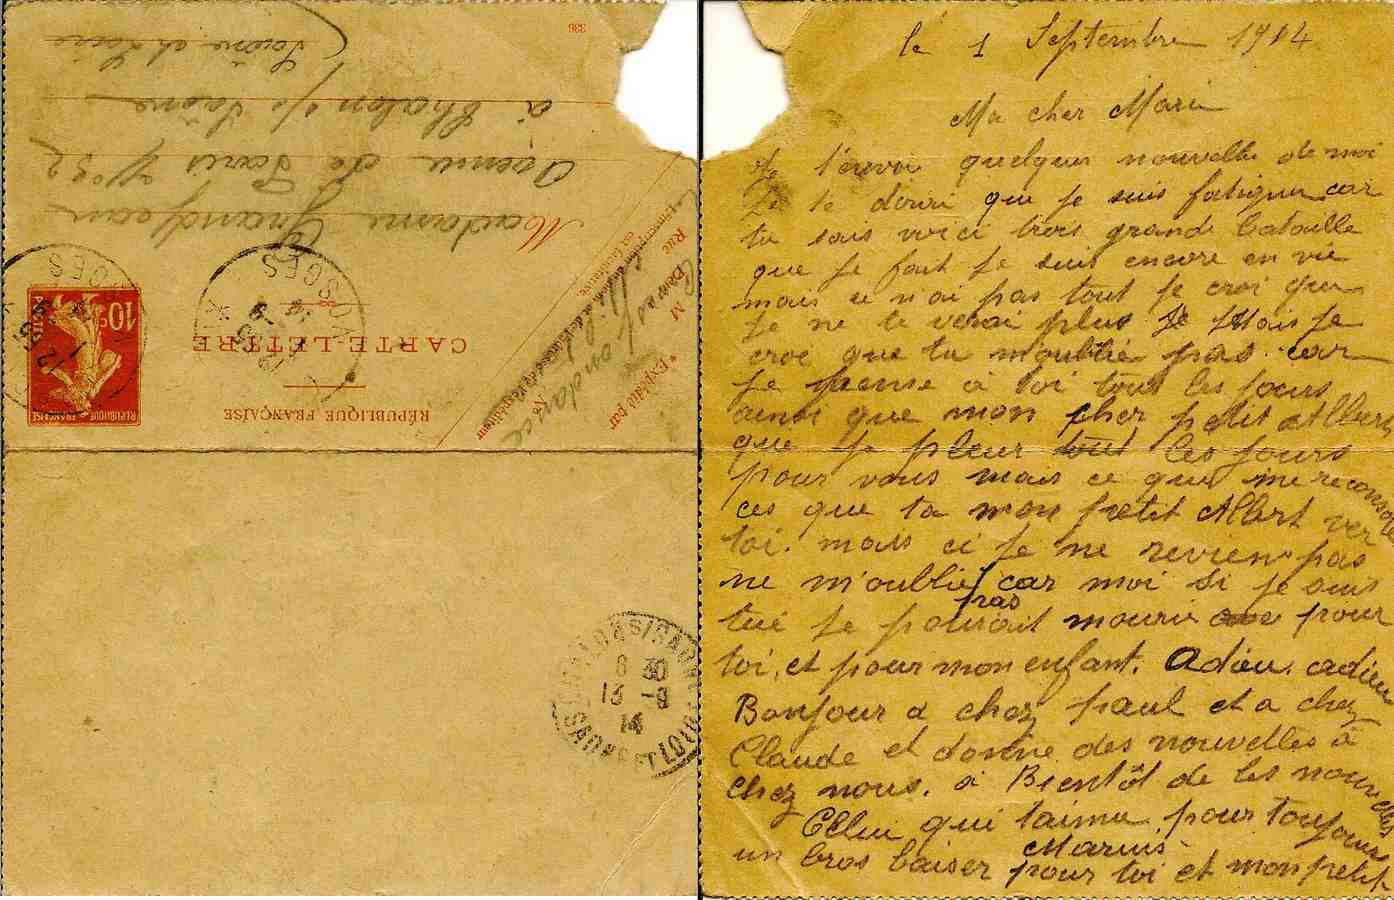 336
Madame Grandjean
Avenue de Paris n° 32
à Chalon s/ Saône
(Saône et Loire
CARTE-LETTRE
RÉPUBLIQUE FRANÇAISE
* Expédié par
M
Rue
N°
Correspondance
Militaire
10c
POSTES
RÉPUBLIQUE FRANÇAISE
VOSGES
CHALON-S-SAÔNE
SAÔNE ET LOIRE
8 30
13 -9
14
le 1 Septembre 1914
Ma cher Mari
Je t'envoi quelques nouvelle de moi
Je te dirai que je suis fatiguer car
tu sais voici trois grande bataille
que je fait je suis encore en vie
mais ce n'ai pas tout je croi que
je ne te verai plus Je Mais je
croi que tu m'oublie pas car
je pense a toi tous les jours
ainsi que mon cher petit Albert
que je pleur tout les jours
pour vous mais ce que me reconsole
ces que ta mon petit Albert ver
toi. mais ci je ne revien pas
ne m'oublie pas car moi si je suis
tué je pourait mourir pour
toi, et pour mon enfant. Adieu, adieu
Bonjour a chez paul et a chez
Claude et donne des nouvelles à
chez nous. à Bientôt de tes nouvelles
Celui qui t'aime pour toujours
Marius
un gros baiser pour toi et mon petit